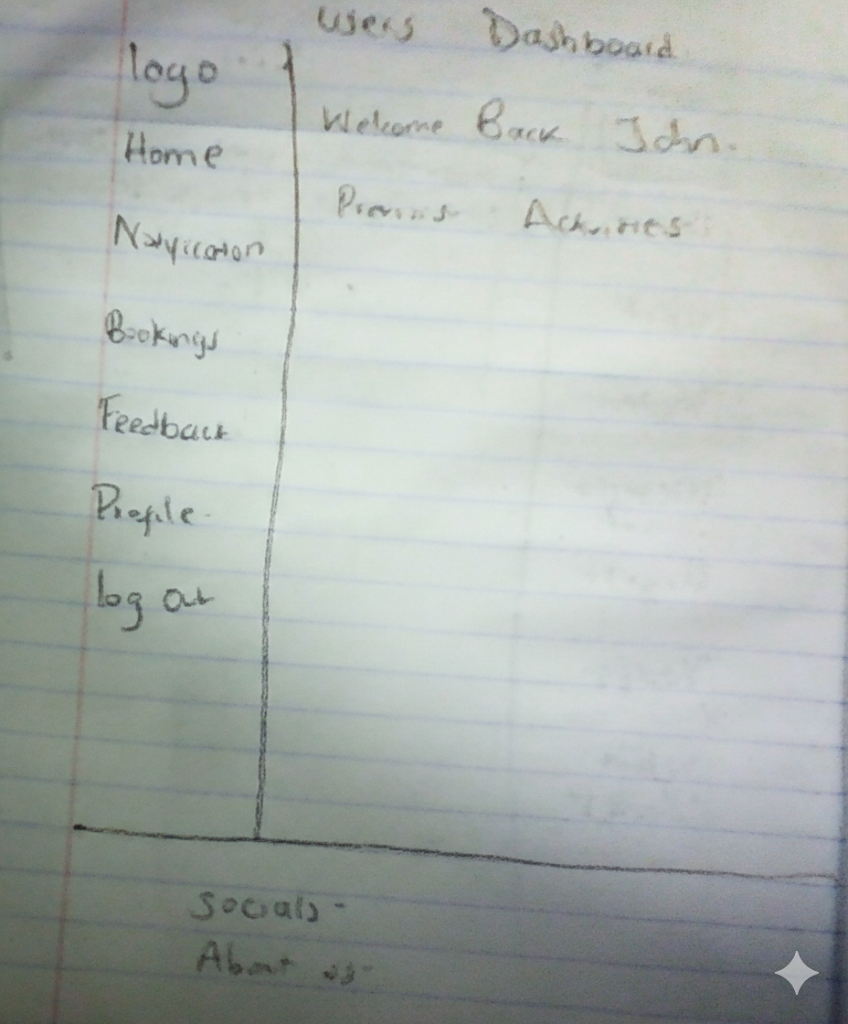 Users Dashboard
logo
Home
Notification
Bookings
Feedback
Profile
log out
Welcome Back John.
Previous Activities
Socials -
About us -